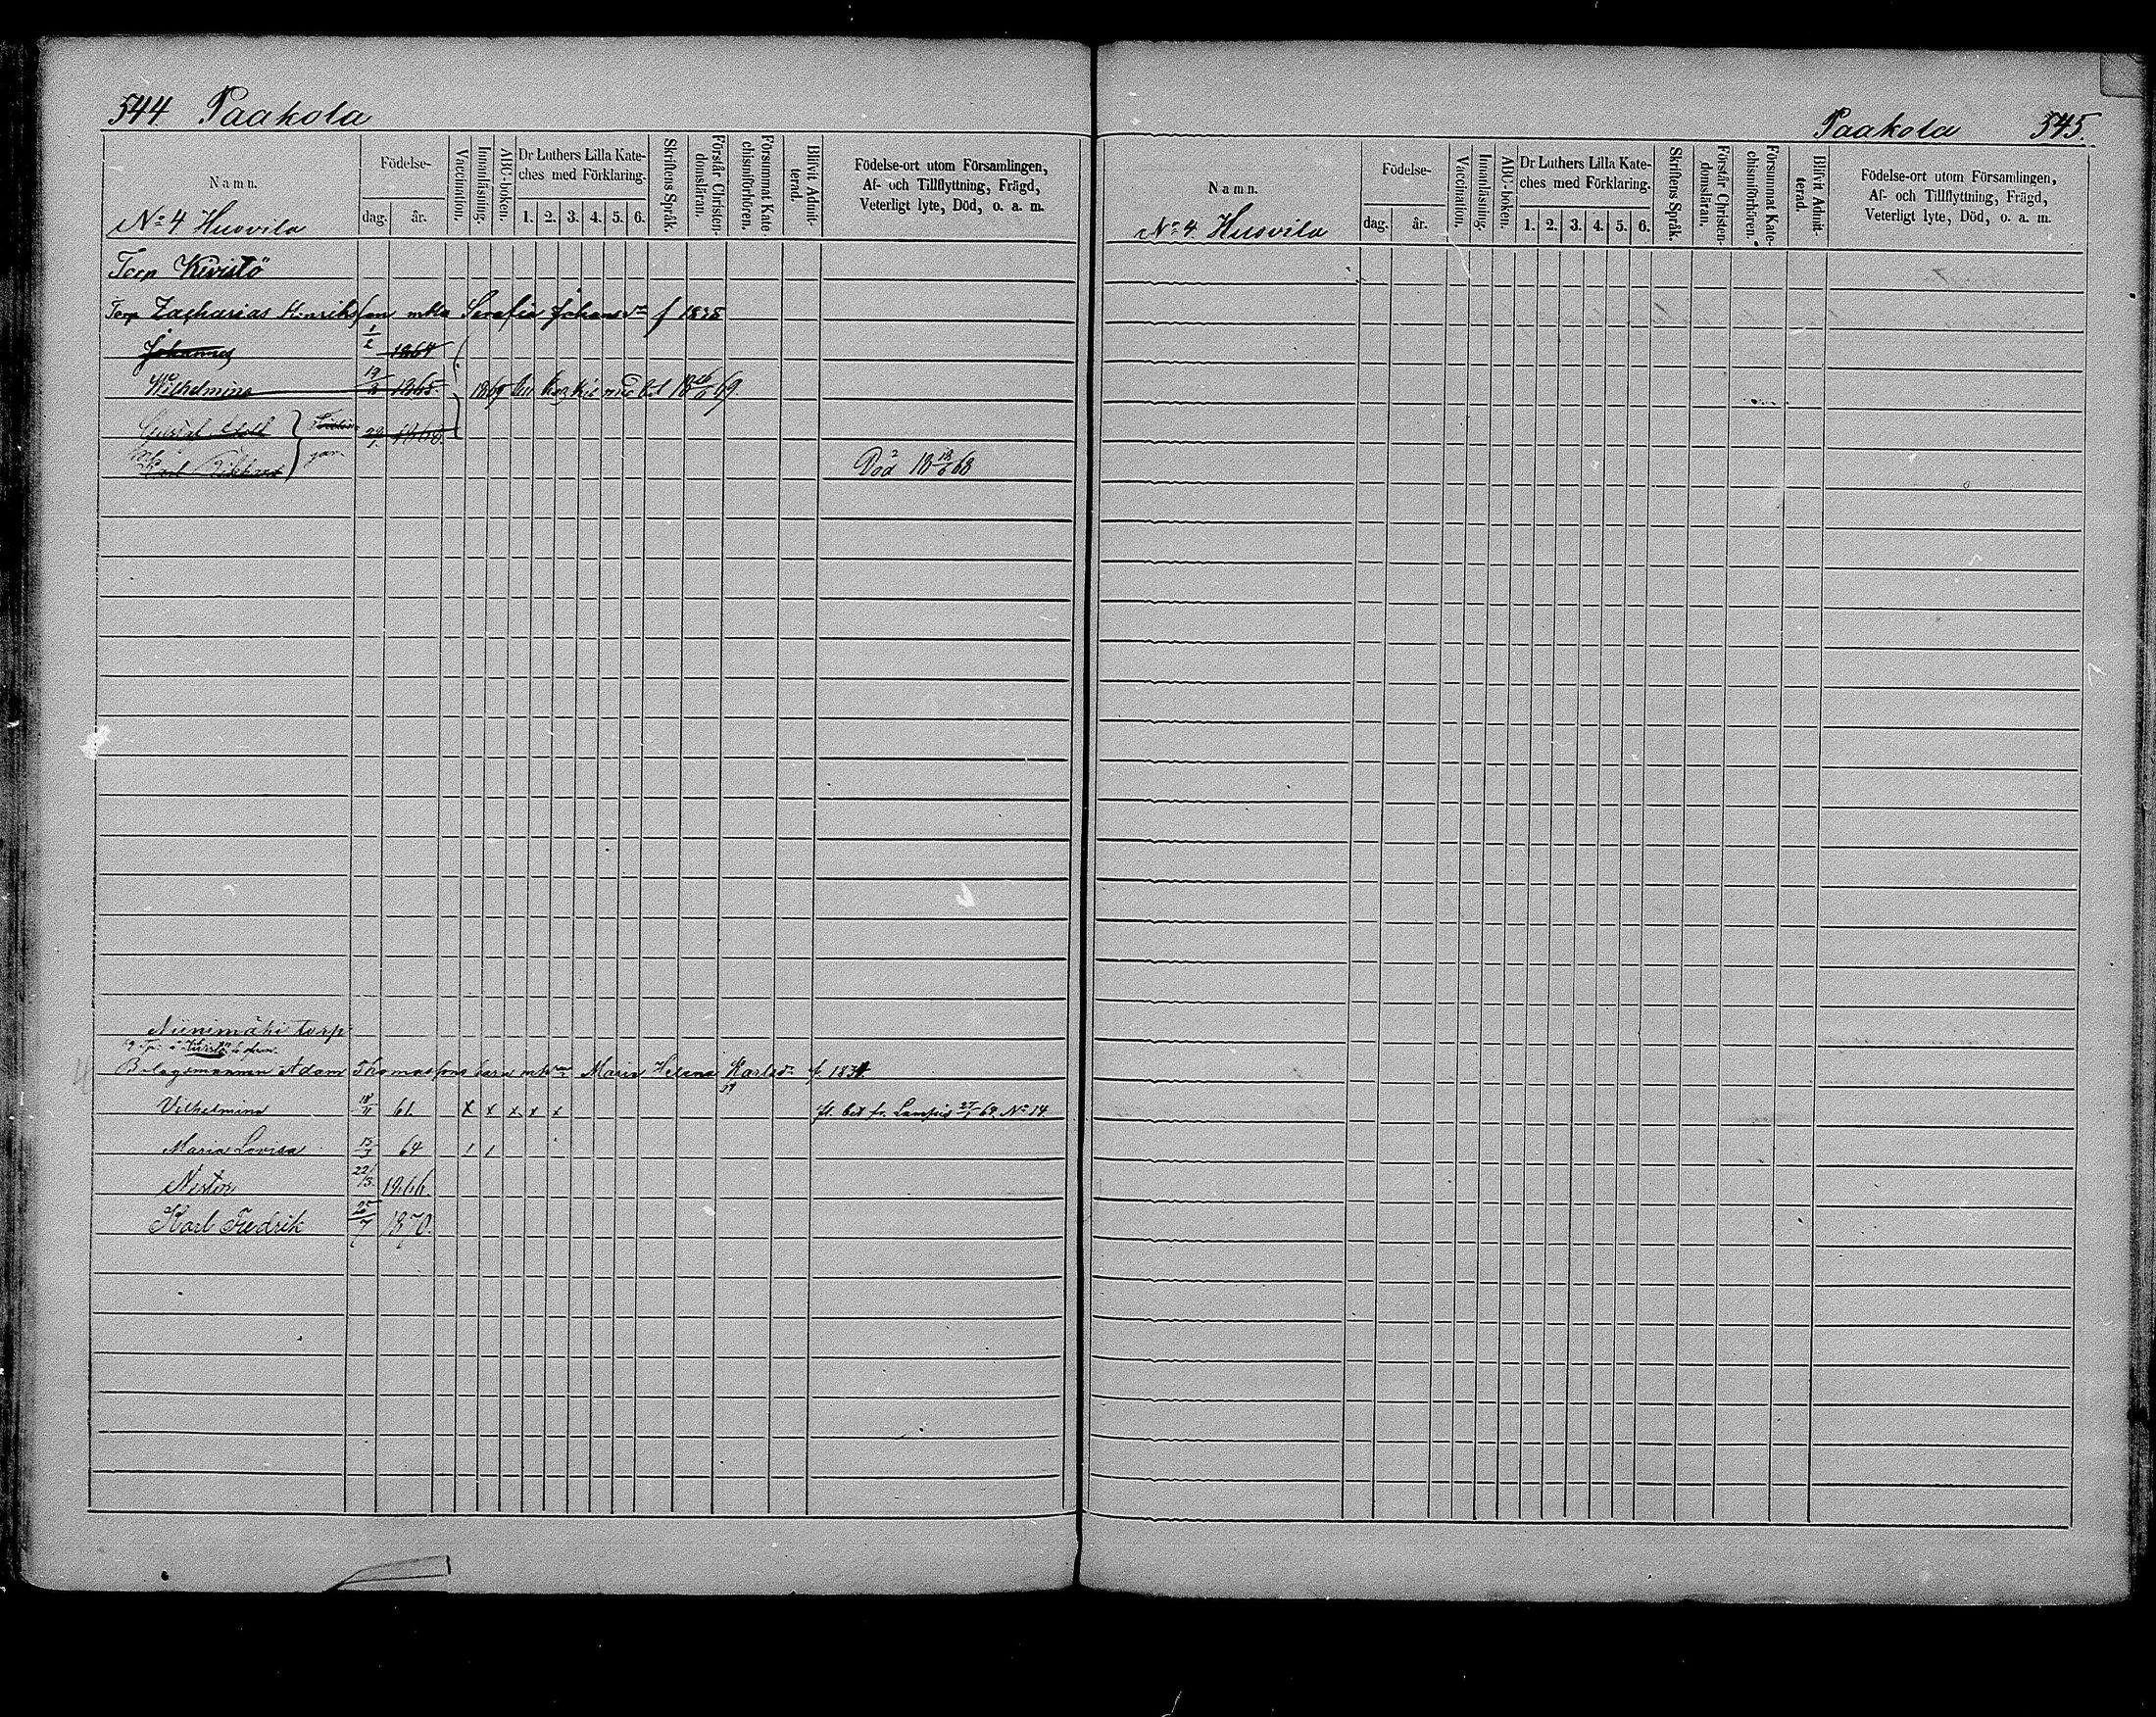 544 Paakola
Namn.
No 4 Husvila
Födelse-
dag. år.
Vaccination.
Innanläsning.
ABC-boken.
Dr Luthers Lilla Kate-
ches med Förklaring.
1. 2. 3. 4. 5. 6.
Skriftens Språk.
Förstår Christen-
domsläran.
Försummat Kate-
chismiförhören.
Blifvit Admit-
terad.
Födelse-ort utom Församlingen,
Af- och Tillflyttning, Frägd,
Veterligt lyte, Död, o. a. m.
Torp Kivistö
Torp Zacharias Henriksson Serafia Johansdr f 1838
Johannes 1/2 1864
Wilhelmina 1865 1869
Gustaf Adolf 1868
Karl Död 18 68
Niinimäki torp
Kivistö
Bolagsmannen Adam Thomassons barn m Maria Helena Karlsdr f. 1834
Vilhelmina 18/11 61 x x x x x fl. bet fr. Lampis 27/1 69 No 14
Maria Lovisa 15/3 64 / /
Nestor 22/3 1866.
Karl Fredrik 25/7 1870.
Paakola 545.
Namn.
No 4. Husvila
Födelse-
dag. år.
Vaccination.
Innanläsning.
ABC-boken.
Dr Luthers Lilla Kate-
ches med Förklaring.
1. 2. 3. 4. 5. 6.
Skriftens Språk.
Förstår Christen-
domsläran.
Försummat Kate-
chismiförhören.
Blifvit Admit-
terad.
Födelse-ort utom Församlingen,
Af- och Tillflyttning, Frägd,
Veterligt lyte, Död, o. a. m.